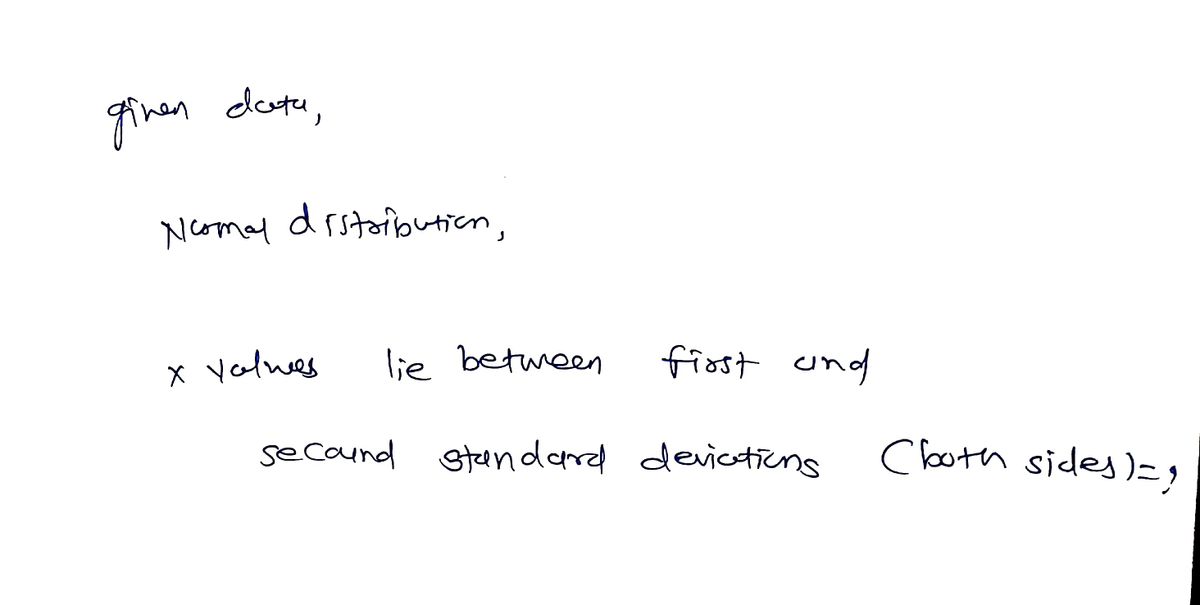 given data,
Normal distribution,
x values lie between first and
secound standard deviations (both sides)=,